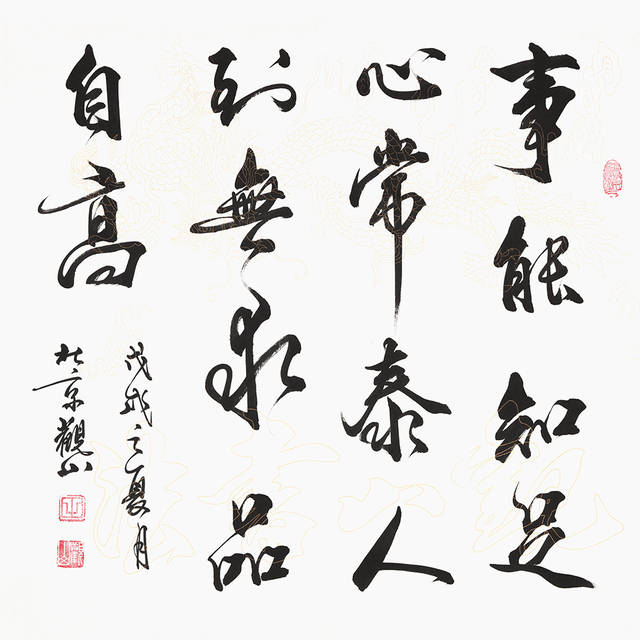 事能知足
心常泰人
到無求品
自高
戊戌之夏月
北京觀山